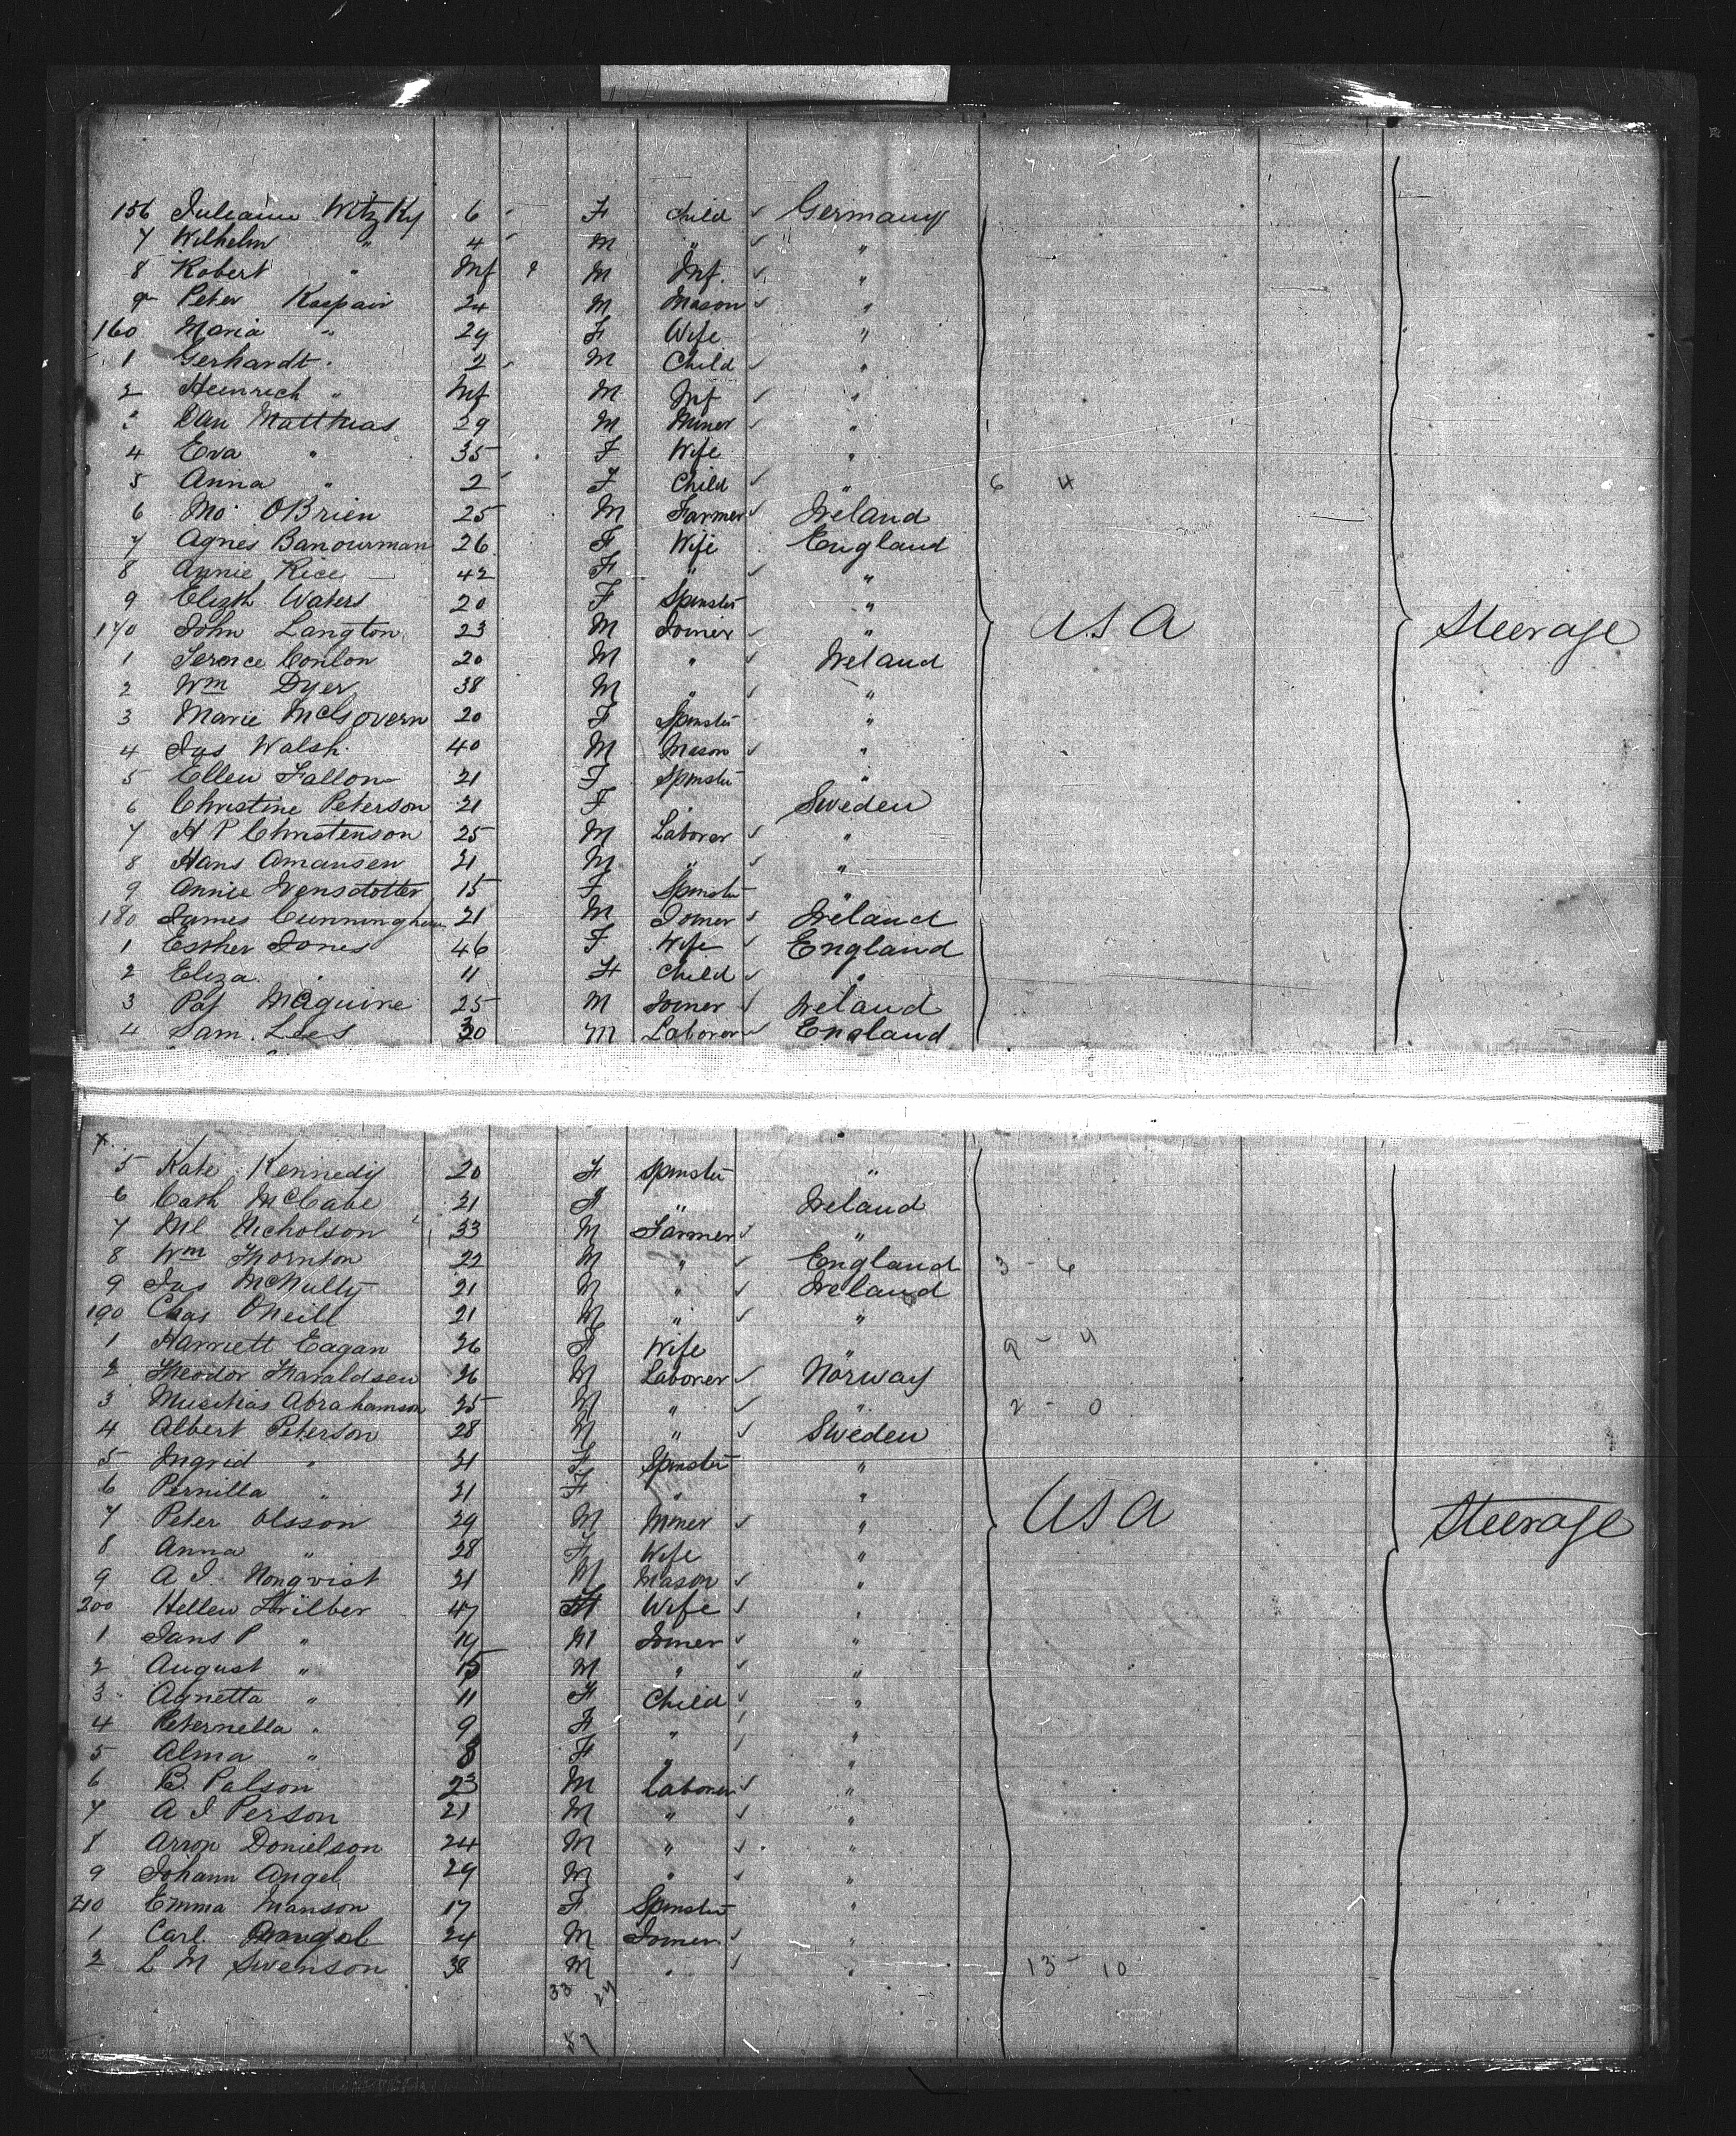 156 Juleaine Witzky 6 - F Child ✓ Germany
7 Wilhelm " 4 - M " ✓ "
8 Robert " Inf M Inf. ✓ "
9 Peter Kaspair 24 M Mason ✓ "
160 Maria " 29 F Wife "
1 Gerhardt " 2 - M Child ✓ "
2 Heinrich " Inf M Inf ✓ "
3 Dan Matthias 29 M Miner ✓ "
4 Eva " 35 F Wife "
5 Anna " 2 - F Child ✓ " 6 4
6 Mo OBrien 25 M Farmer ✓ Ireland
7 Agnes Banourman 26 F Wife England
8 Annie Rice 42 F " ✓ "
9 Elizth Waters 20 F Spinster "
170 John Langton 23 M Joiner ✓ " USA Steerage
1 Terence Conlon 20 M " ✓ Ireland
2 Wm Dyer 38 M " ✓ "
3 Marie McGovern 20 F Spinster "
4 Jas Walsh 40 M Mason ✓ "
5 Ellen Fallon 21 F Spinster "
6 Christine Peterson 21 F Sweden
7 H P Christenson 25 M Laborer ✓ "
8 Hans Amansen 21 M " ✓ "
9 Annie Svensdotter 15 F Spinster "
180 James Cunningham 21 M Joiner ✓ Ireland
1 Esther Jones 46 F Wife ✓ England
2 Eliza " 11 F Child ✓ "
3 Pat McGuire 25 M Joiner ✓ Ireland
4 Sam. Lees 30 M Laborer ✓ England
5 Kate Kennedy 20 F Spinster "
6 Cath McCabe 21 F " Ireland
7 Ml Nicholson 33 M Farmer ✓ "
8 Wm Thornton 22 M " ✓ England 3 - 6
9 Jas McNulty 21 M " ✓ Ireland
190 Chas ONeill 21 M " ✓ "
1 Harriett Eagan 26 F Wife " 9 - 4
2 Theodor Tharaldsen 26 M Laborer ✓ Norway
3 Abrahamson 25 M " ✓ " 2 - 0
4 Albert Peterson 28 M " ✓ Sweden
5 Ingrid " 21 F Spinster "
6 Pernilla " 21 F " "
7 Peter Olsson 29 M Miner ✓ " USA Steerage
8 Anna " 28 F Wife "
9 A J. Nonqvist 21 M Mason ✓ "
200 Hellen Trilber 47 F Wife ✓ "
1 Jans P " 19 M Joiner ✓ "
2 August " 15 M " ✓ "
3 Agnetta " 11 F Child ✓ "
4 Peternella " 9 F " ✓ "
5 Alma " 8 F " ✓ "
6 B. Palson 23 M Laborer ✓ "
7 A J Person 21 M " ✓ "
8 Arron Donielson 24 M " ✓ "
9 Johann Angel 29 M " ✓ "
210 Emma Manson 17 F Spinster "
1 Carl 24 M Joiner ✓ "
2 L M Swenson 38 M " ✓ " 13 - 10
33 24
57